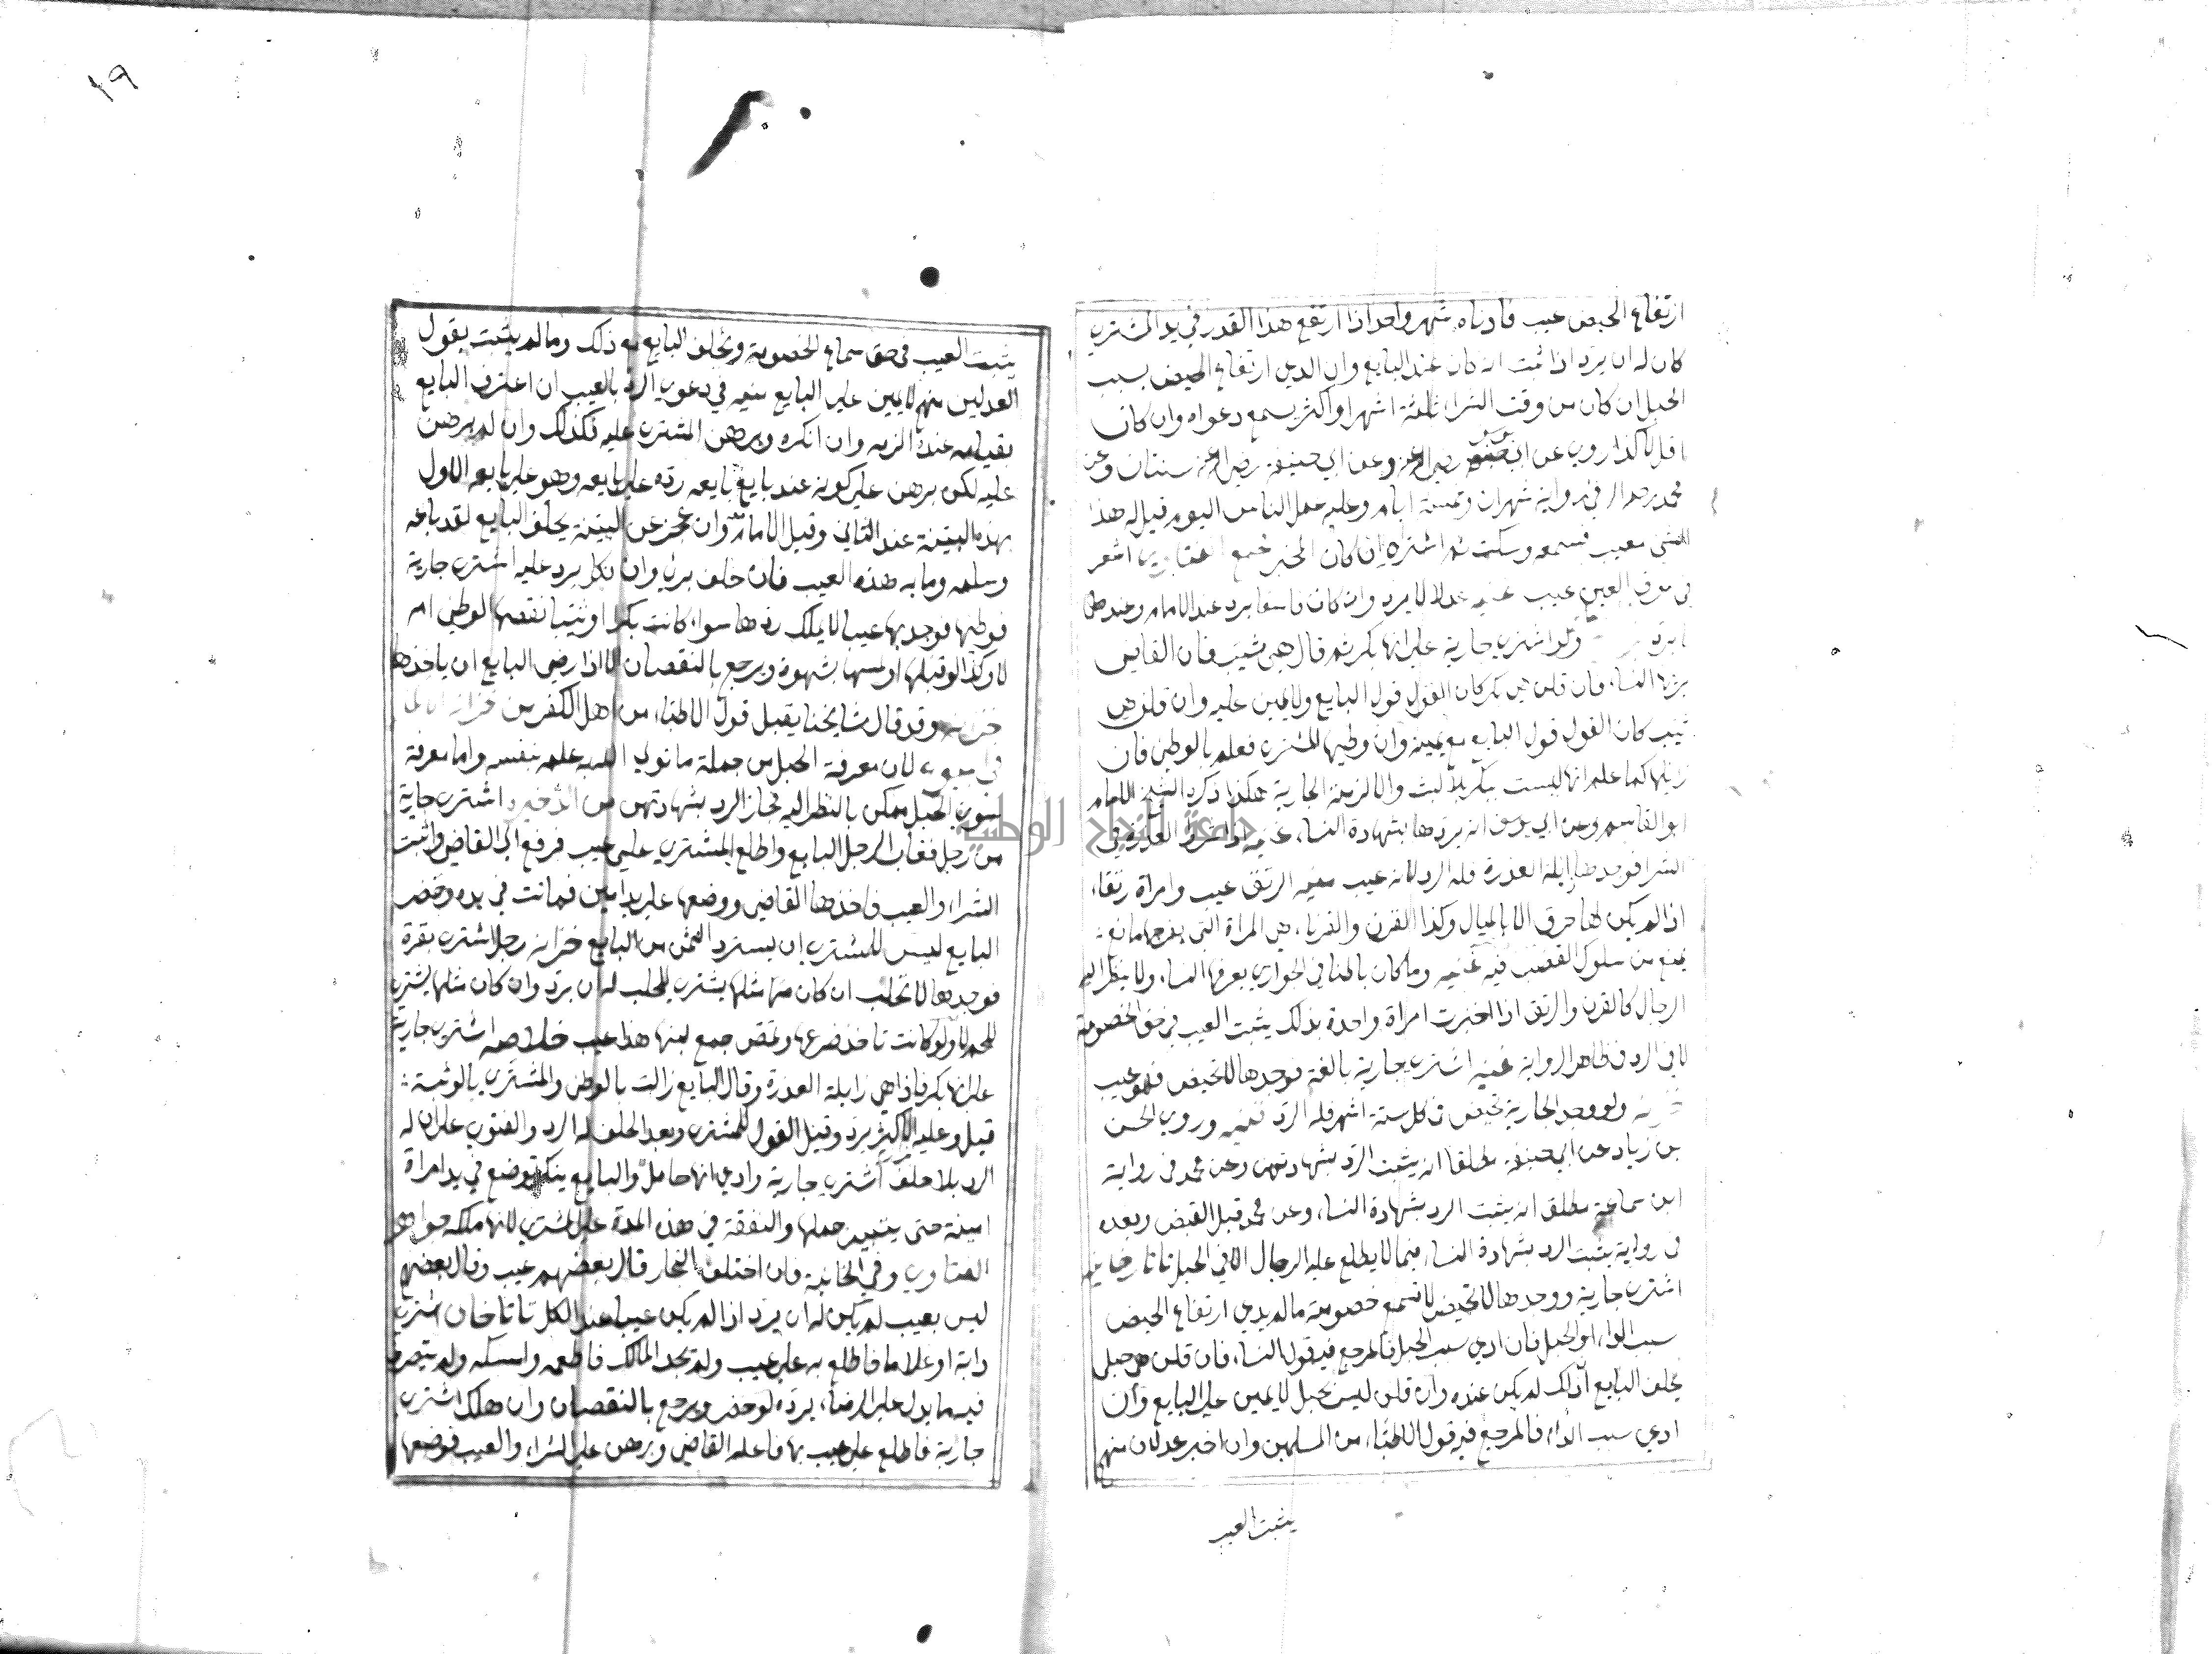 ارتفاع الحيض عيب فادناه شهر واحد اذا ارتفع هذا القدر في يد المشتري
كان له ان يرد اذا ثبت انه كان عند البايع وان ادعى ارتفاع الحيض بسبب
الحبل ان كان من وقت الشرا ثلثة اشهر او اكثر يسمع دعواه وان كان
اقل لا كذا روي عن ابي وعن ابي حنيفة سنتان وعن
محمد رحمه الله في رواية شهران وخمسة ايام وعليه عمل الناس اليوم قيل له هذا
الشي معيب فسمعه وسكت ثم اشتراه ان كان المخبر
عيب عدلا لا يرد وان كان فاسقا يرد عند الامام وعندهما
ولو اشترى جارية على انها بكر ثم قال هي ثيب فان القاضي
يريها النساء فان قلن هي بكر كان القول قول البايع ولا يمين عليه وان قلن هي
ثيب كان القول قول البايع مع يمينه وان وطيها المشتري فعلم بالوطي فان
زايلها كما علم انها ليست ببكر بلا لبث والا لزمته الجارية هكذا ذكره الشيخ الامام
ابو القاسم وعن ابي يوسف انه يردها بشهادة النساء
الشرا فوجدها زايلة العذرة فله الرد لانه عيب الرتق عيب وامراة رتقاء
اذا لم يكن لها خرق الا بالمبال وكذا القرن والقرناء هي المراة التي بفرجها مانع
يمنع من سلوك القضيب فيه وما كان باطنا في الجواري يعرفها النساء ولا ينظر اليه
الرجال كالقرن والرتق اذا اخبرت امراة واحدة بذلك يثبت العيب في حق الخصومة
لا في الرد في ظاهر الرواية اشترى جارية بالغة فوجدها لا تحيض فهو عيب
ولو وجد الجارية تحيض في كل ستة اشهر فله الرد وروى الحسن
بن زياد عن ابي حنيفة مطلقا انه يثبت الرد بشهادتهن وعن محمد في رواية
ابن سماعة مطلق انه يثبت الرد بشهادة النساء وعن محمد قبل القبض وبعده
في رواية يثبت الرد بشهادة النساء فيما لا يطلع عليه الرجال الا في الحبل تاتارخانيه
اشترى جارية ووجدها لا تحيض لا تسمع خصومة ما لم يدعي ارتفاع الحيض
بسبب الداء او الحبل فان ادعى بسبب الحبل فالمرجع فيه قول النساء فان قلن هي حبلى
يحلف البايع ان ذلك لم يكن عنده وان قلن ليست بحبل لا يمين على البايع وان
ادعي بسبب الداء فالمرجع فيه قول الاطباء من المسلمين وان اخبر عدلان منهم
يثبت العيب
١٩
يثبت العيب في حق سماع الخصومة ويحلف البايع ذلك وما لم يثبت بقول
العدلين منهم لا يمين على البايع في دعوى الرد بالعيب ان اعترف البايع
بقيامه عنده الزمه وان انكره وبرهن المشتري عليه فكذلك وان لم يبرهن
عليه لكن برهن على كونه عند بايع بايعه رده على بايعه وهو على بايعه الاول
بهذه البينة عند الثاني وقيل الامام وان عجز عن البينة يحلف البايع لقد باعه
وسلمه وما به هذه العيب فان حلف برئ وان نكل يرد عليه اشترى جارية
فوطيها فوجد بها عيبا لا يملك ردها سواء كانت بكرا او ثيبا نقصها الوطي ام
لا وكذا لو قبلها او لمسها بشهوة ويرجع بالنقصان الا اذا رضي البايع ان ياخذها
وقد قال مشايخنا يقبل قول الاطباء من اهل الكفر من خزانه
لان معرفة الحبل من جملة ما تولى الله علمه بنفسه واما معرفة
الحبل ممكن بالنظر اليه فجاز الرد بشهادتهن من الذخيره اشترى جارية
من رجل فغاب الرجل البايع واطلع المشتري على عيب فرفع الى القاضي واثبت
الشراء والعيب فاخذها القاضي ووضعها على يد امين فماتت في يده وحضر
البايع ليس للمشتري ان يسترد الثمن من البايع خزانه رجل اشترى بقرة
فوجدها لا تحلب ان كان مثلها يشترى للحلب له ان يرد وان كان مثلها يشترى
للحم لا ولو كانت تاخذ ضرعها وتمص جمع لبنها هذا عيب خلاصه اشترى جارية
على انها بكر فاذا هي زايلة العذرة وقال البايع زالت بالوطي والمشتري بالوثبة
قيل وعليه الاكثر يرد وقيل القول للمشتري وبعد الحلف له الرد والفتوى على ان له
الرد بلا حلف اشترى جارية وادعى انها حامل والبايع ينكر توضع في يد امراة
امينة حتى يتبين حملها والنفقة في هذه المدة على المشتري لانها ملكه جواهر
الفتاوي وفي الخانية فان اختلف التجار قال بعضهم عيب وقال بعضهم
ليس بعيب لم يكن له ان يرد اذا لم يكن عيبا عند الكل تاتاخان اشترى
دابة او غلاما فاطلع به على عيب ولم يجد المالك فاطعمه وامسكه ولم يتصرف
فيه ما يدل على الرضاء يرده لو حضر ويرجع بالنقصان وان هلك اشترى
جارية فاطلع على عيب بها فاعلم القاضي وبرهن على الشراء والعيب فوضعها
جامعة النجاح الوطنية